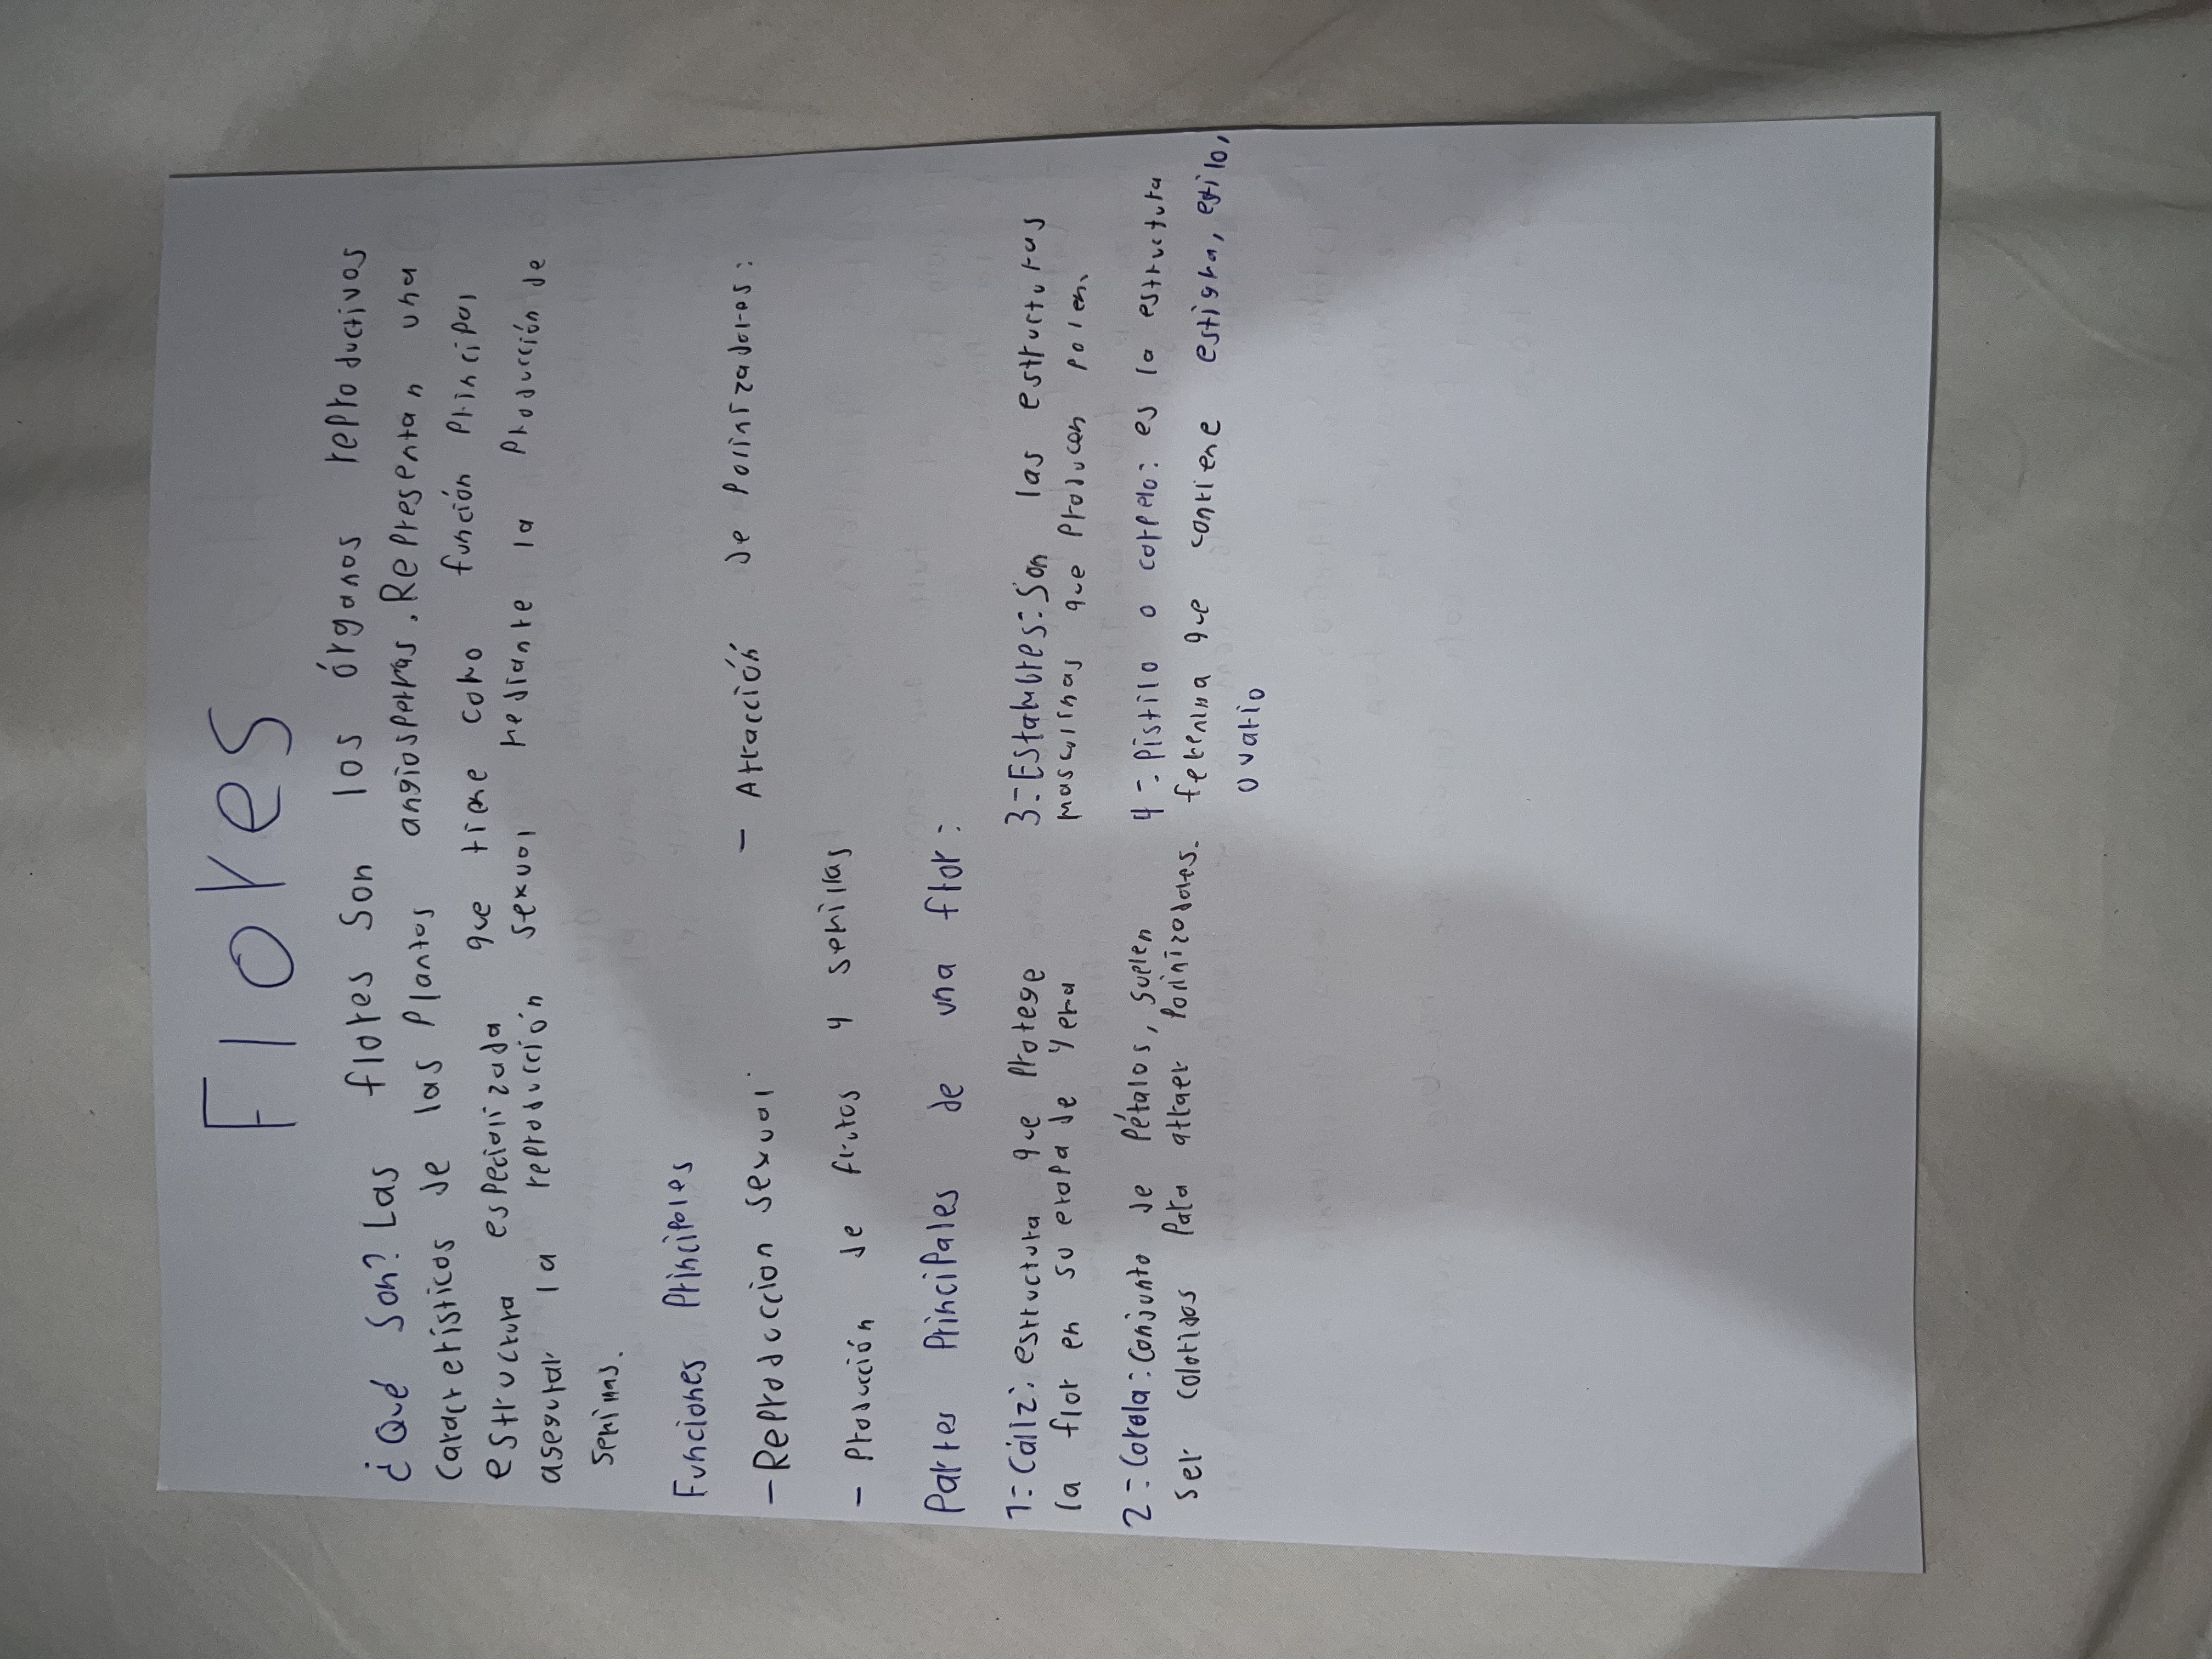 Flores
¿Qué son? Las flores son los órganos reproductivos
característicos de las plantas angiospermas. Representan una
estructura especializada que tiene como función principal
asegurar la reproducción sexual mediante la producción de
semillas.
Funciones principales
- Reproduccion sexual. - Atracción de polinizadores:
- Producción de frutos y semillas
Partes principales de una flor:
1-: Cáliz: estructura que protege
la flor en su etapa de yema
2-: Corola: Conjunto de pétalos, suelen
ser coloridos para atraer polinizadores.
3-: Estambres: Son las estructuras
masculinas que producen polen.
4-: Pistilo o carpelo: es la estructura
femenina que contiene estigma, estilo,
ovario